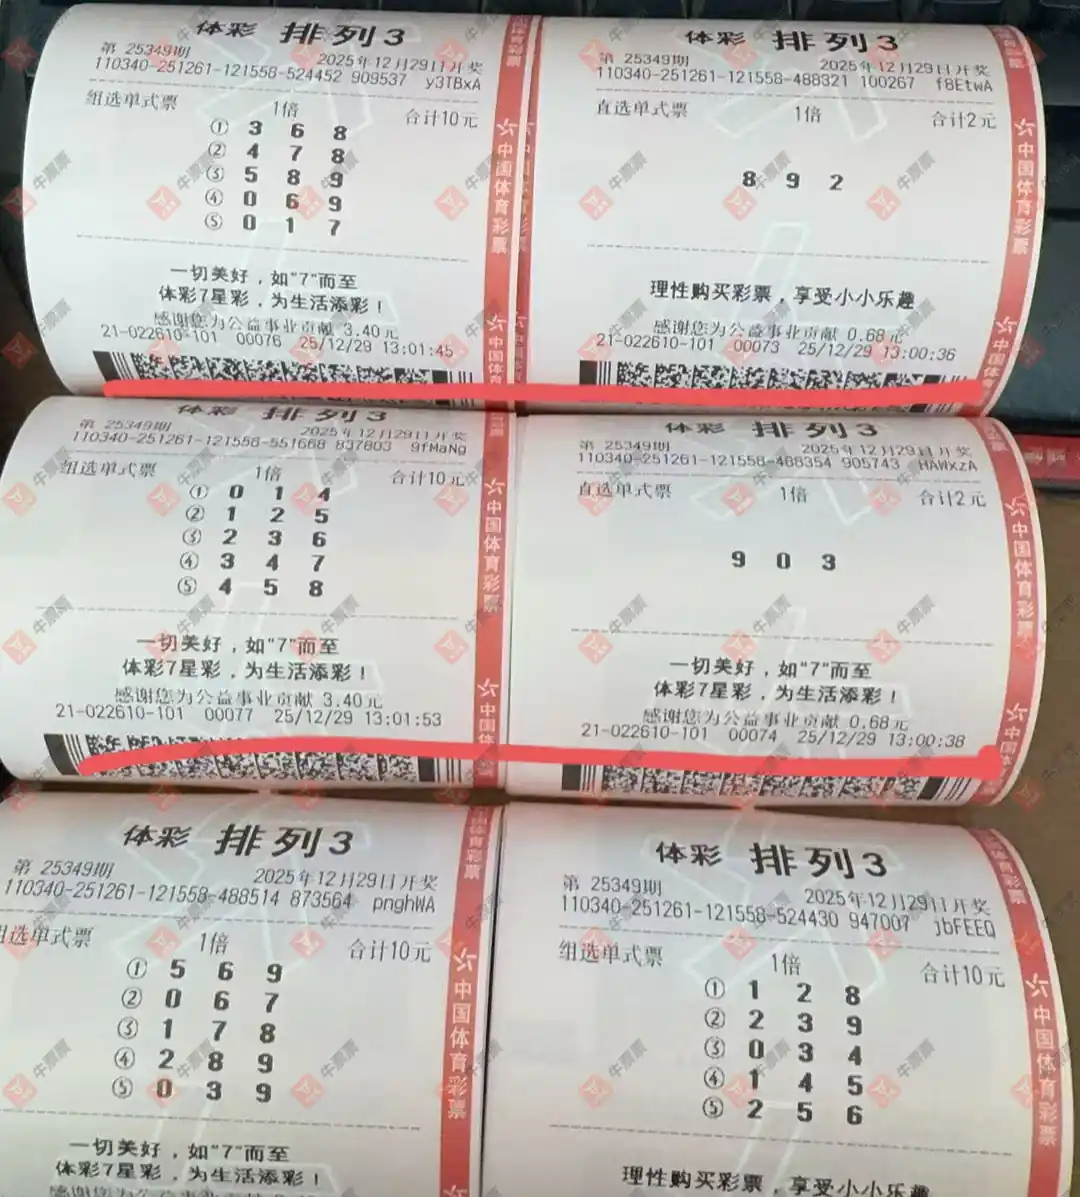 体彩 排列3
第 25349期
2025年12月29日开奖
110340-251261-121558-524452 909537 y3TBxA
组选单式票 1倍 合计10元
① 3 6 8
② 4 7 8
③ 5 8 9
④ 0 6 9
⑤ 0 1 7
一切美好，如"7"而至
体彩7星彩，为生活添彩！
感谢您为公益事业贡献 3.40元
21-022610-101 00076 25/12/29 13:01:45
中国体育彩票
体彩 排列3
第 25349期
2025年12月29日开奖
110340-251261-121558-488321 100267 f8EtwA
直选单式票 1倍 合计2元
8 9 2
理性购买彩票，享受小小乐趣
感谢您为公益事业贡献 0.68元
21-022610-101 00073 25/12/29 13:00:36
中国体育彩票
体彩 排列3
第 25349期
2025年12月29日开奖
110340-251261-121558-551668 837803 9fMaNg
组选单式票 1倍 合计10元
① 0 1 4
② 1 2 5
③ 2 3 6
④ 3 4 7
⑤ 4 5 8
一切美好，如"7"而至
体彩7星彩，为生活添彩！
感谢您为公益事业贡献 3.40元
21-022610-101 00077 25/12/29 13:01:53
中国体育彩票
体彩 排列3
第 25349期
2025年12月29日开奖
110340-251261-121558-488354 905743 HAWxzA
直选单式票 1倍 合计2元
9 0 3
一切美好，如"7"而至
体彩7星彩，为生活添彩！
感谢您为公益事业贡献 0.68元
21-022610-101 00074 25/12/29 13:00:38
中国体育彩票
体彩 排列3
第 25349期
2025年12月29日开奖
110340-251261-121558-488514 873564 pnghWA
组选单式票 1倍 合计10元
① 5 6 9
② 0 6 7
③ 1 7 8
④ 2 8 9
⑤ 0 3 9
一切美好，如"7"而至
体彩7星彩，为生活添彩！
中国体育彩票
体彩 排列3
第 25349期
2025年12月29日开奖
110340-251261-121558-524430 947007 jbFEEQ
组选单式票 1倍 合计10元
① 1 2 8
② 2 3 9
③ 0 3 4
④ 1 4 5
⑤ 2 5 6
理性购买彩票，享受小小乐趣
中国体育彩票
牛票票